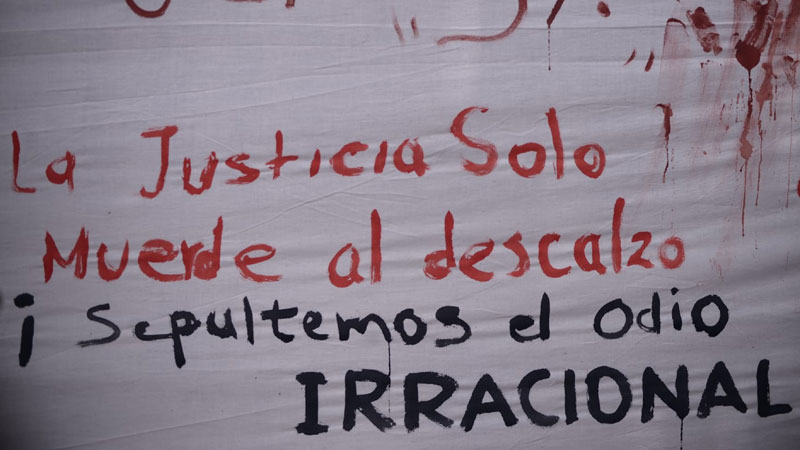 La Justicia Solo
Muerde al descalzo
¡ Sepultemos el odio
IRRACIONAL